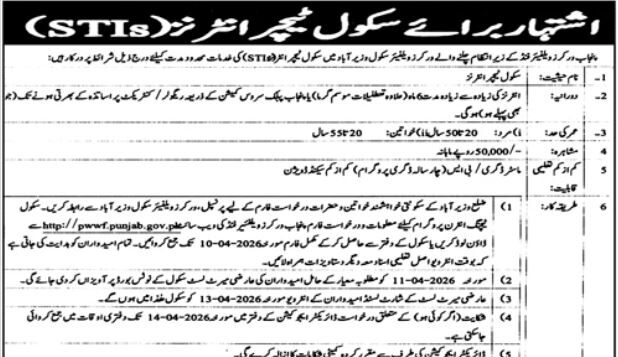 اشتہار برائے سکول ٹیچر انٹرنز (STIs)
پنجاب ورکرز ویلفیئر فنڈ کے زیر انتظام چلنے والے ورکرز ویلفیئر سکول وزیر آباد میں سکول ٹیچر انٹرنز (STIs) کی خدمات محدود مدت کیلئے درج ذیل شرائط پر درکار ہیں:
1- نام حیثیت: سکول ٹیچر انٹرنز
2- دورانیہ: انٹرنز کی زیادہ سے زیادہ مدت 6 ماہ (علاوہ تعطیلات موسم گرما) یا پنجاب پبلک سروس کمیشن کے ذریعہ ریگولر/کنٹریکٹ پر اساتذہ کے بھرتی ہونے تک (جو
بھی پہلے ہو) ہوگی۔
3- عمر کی حد: i) مرد: 20 تا 50 سال ii) خواتین: 20 تا 55 سال
4 مشاہرہ: 50,000/- روپے ماہانہ
5 کم از کم تعلیمی ماسٹر ڈگری / بی ایس (چار سالہ ڈگری پروگرام) کم از کم سیکنڈ ڈویژن
قابلیت:
6 طریقہ کار: 1) ضلع وزیر آباد کے سکونتی خواہشمند خواتین و حضرات درخواست فارم کے لیے پرنسپل، ورکرز ویلفیئر سکول وزیر آباد سے رابطہ کریں۔ سکول
ٹیچنگ انٹرن پروگرام کیلئے معلومات و درخواست فارم پنجاب ورکرز ویلفیئر فنڈ کی ویب سائٹ http://pwwf.punjab.gov.pk سے
ڈاؤن لوڈ کریں یا سکول کے دفتر سے حاصل کر کے مکمل فارم مورخہ 10-04-2026 تک جمع کروائیں۔ تمام امیدواران کو ہدایت کی جاتی ہے
کہ بوقت انٹرویو اصل تعلیمی اسناد معہ دیگر دستاویزات ہمراہ لائیں۔
2) مورخہ 11-04-2026 کو مطلوبہ معیار کے حامل امیدواران کی عارضی میرٹ لسٹ سکول کے نوٹس بورڈ پر آویزاں کر دی جائے گی۔
3) عارضی میرٹ لسٹ کے شارٹ لسٹڈ امیدواران کے انٹرویو مورخہ 13-04-2026 کو سکول ھذا میں ہوں گے۔
4) شکایت (اگر کوئی ہو) کے متعلق درخواست ڈائریکٹر ایجوکیشن کے دفتر میں مورخہ 14-04-2026 تک دفتری اوقات میں جمع کروائی
جا سکتی ہے۔
5) ڈائریکٹر ایجوکیشن کی طرف سے مقرر کردہ کمیٹی شکایات کا ازالہ کرے گی۔